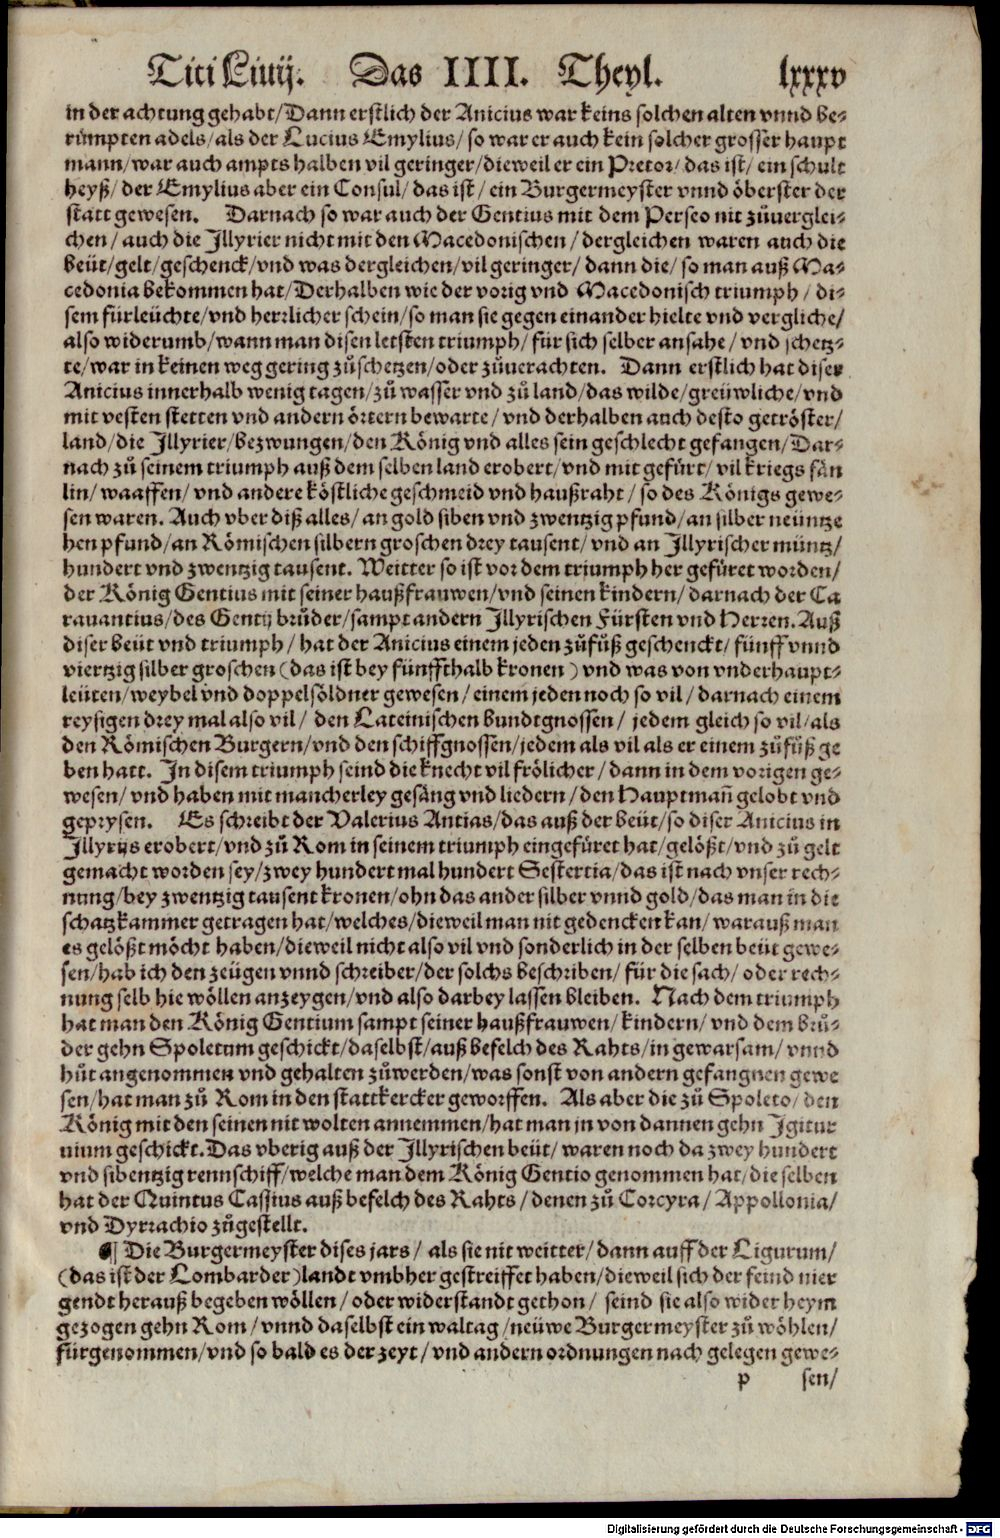 Titi Liuij. Das IIII. Theyl. lxxxv
in der achtung gehabt/Dann erstlich der Anicius war keins solchen alten vnnd be-
růmpten adels/als der Lucius Emylius/so war er auch kein solcher grosser haupt
mann/war auch ampts halben vil geringer/dieweil er ein Pretor/das ist/ein schult
heyß/der Emylius aber ein Consul/das ist/ein Burgermeyster vnnd öberster der
statt gewesen. Darnach so war auch der Gentius mit dem Perseo nit zůverglei-
chen/auch die Illyrier nicht mit den Macedonischen/dergleichen waren auch die
beüt/gelt/geschenck/vnd was dergleichen/vil geringer/dann die/so man auß Ma-
cedonia bekommen hat/Derhalben wie der vorig vnd Macedonisch triumph/di-
sem fürleüchte/vnd herrlicher schein/so man sie gegen einander hielte vnd vergliche/
also widerumb/wann man disen letsten triumph/für sich selber ansahe/vnd schetz-
te/war in keinen weg gering zůschetzen/oder zůuerachten. Dann erstlich hat diser
Anicius innerhalb wenig tagen/zů wasser vnd zů land/das wilde/greüwliche/vnd
mit vesten stetten vnd andern örtern bewarte/vnd derhalben auch desto getröster/
land/die Illyrier/bezwungen/den König vnd alles sein geschlecht gefangen/Dar-
nach zů seinem triumph auß dem selben land erobert/vnd mit gefürt/vil kriegs fän
lin/waaffen/vnd andere köstliche geschmeid vnd haußraht/so des Königs gewe-
sen waren. Auch vber diß alles/an gold siben vnd zwentzig pfund/an silber neüntze
hen pfund/an Römischen silbern groschen drey tausent/vnd an Illyrischer müntz/
hundert vnd zwentzig tausent. Weitter so ist vor dem triumph her gefüret worden/
der König Gentius mit seiner haußfrauwen/vnd seinen kindern/darnach der Ca
rauantius/des Gentij brůder/sampt andern Illyrischen Fürsten vnd Herren. Auß
diser beüt vnd triumph/hat der Anicius einem jeden zůfůß geschenckt/fünff vnnd
viertzig silber groschen (das ist bey fünffthalb kronen) vnd was von vnderhaupt-
leüten/weybel vnd doppelsöldner gewesen/einem jeden noch so vil/darnach einem
reysigen drey mal also vil/den Lateinischen bundtgnossen/jedem gleich so vil/als
den Römischen Burgern/vnd den schiffgnossen/jedem als vil als er einem zůfůß ge
ben hatt. In disem triumph seind die knecht vil frölicher/dann in dem vorigen ge-
wesen/vnd haben mit mancherley gesäng vnd liedern/den Hauptmañ gelobt vnd
geprysen. Es schreibt der Valerius Antias/das auß der beüt/so diser Anicius in
Illyrijs erobert/vnd zů Rom in seinem triumph eingefüret hat/gelößt/vnd zů gelt
gemacht worden sey/zwey hundert mal hundert Sestertia/das ist nach vnser rech-
nung/bey zwentzig tausent kronen/ohn das ander silber vnnd gold/das man in die
schatzkammer getragen hat/welches/dieweil man nit gedencken kan/warauß man
es gelößt möcht haben/dieweil nicht also vil vnd sonderlich in der selben beüt gewe-
sen/hab ich den zeügen vnnd schreiber/der solchs beschriben/für die sach/oder rech-
nung selb hie wöllen anzeygen/vnd also darbey lassen bleiben. Nach dem triumph
hat man den König Gentium sampt seiner haußfrauwen/kindern/vnd dem brů-
der gehn Spoletum geschickt/daselbst/auß befelch des Rahts/in gewarsam/vnnd
hůt angenommen vnd gehalten zůwerden/was sonst von andern gefangnen gewe
sen/hat man zů Rom in den stattkercker geworffen. Als aber die zů Spoleto/den
König mit den seinen nit wolten annemmen/hat man jn von dannen gehn Igitur
uium geschickt. Das vberig auß der Illyrischen beüt/waren noch da zwey hundert
vnd sibentzig rennschiff/welche man dem König Gentio genommen hat/die selben
hat der Quintus Cassius auß befelch des Rahts/denen zů Corcyra/Appollonia/
vnd Dyrrachio zůgestellt.
¶ Die Burgermeyster dises jars/als sie nit weitter/dann auff der Ligurum/
(das ist der Lombarder) landt vmbher gestreiffet haben/dieweil sich der feind nier
gendt herauß begeben wöllen/oder widerstandt gethon/seind sie also wider heym
gezogen gehn Rom/vnnd daselbst ein waltag/neüwe Burgermeyster zů wöhlen/
fürgenommen/vnd so bald es der zeyt/vnd andern ordnungen nach gelegen gewe-
p sen/
Digitalisierung gefördert durch die Deutsche Forschungsgemeinschaft - DFG